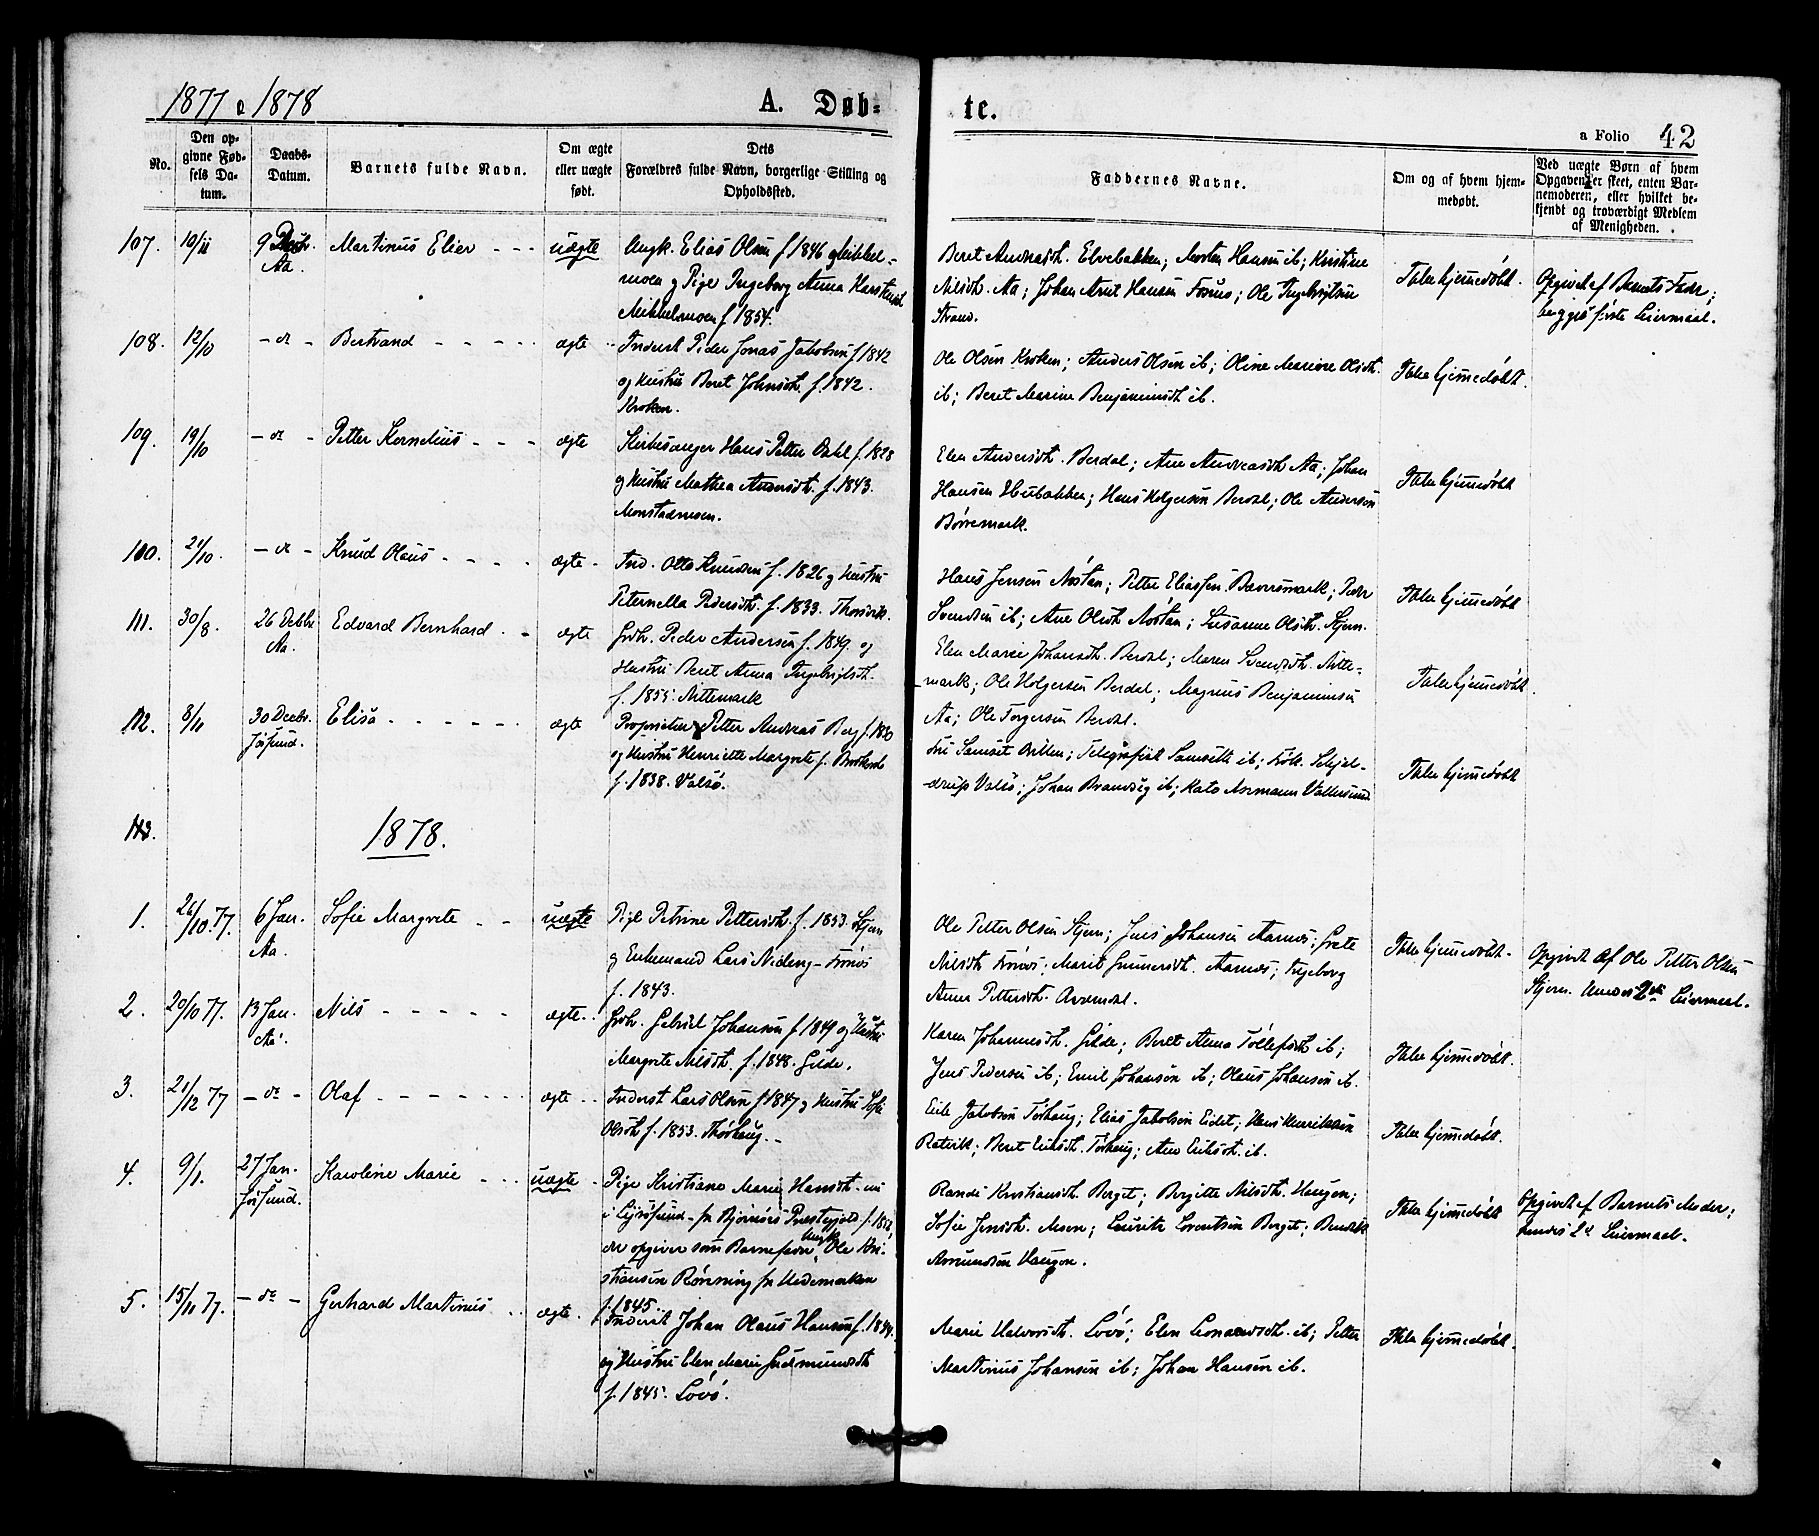 1877 o 1878
A. Døb-
te.
a Folio 42
No.
Den op-
givne Fød-
sels Da-
tum.
Daabs-
Datum.
Barnets fulde Navn.
Om ægte
eller uægte
født.
Dets
Forældres fulde Navn, borgerlige Stilling og
Opholdssted.
Faddernes Navne.
Om og af hvem hjem-
medøbt.
Ved uægte Børn af hvem
Opgaven er skeet, enten Bar-
nemoderen, eller hvilket be-
kjendt og troværdigt Medlem
af Menigheden.
107. 10/11 9 Decbr. Martinus Elier - - - uægte Ungk. Elias Olsen f 1846
Aa. moen og Pige Ingeborg Anna
Mikkelsmoen f 1854.
Beret Andreasdt. Elvebakken; Morten Hansen ib; Kristine
Nilsdt. Aa; Johan Arnt Hansen Fosnes; Ole Ingebrigtsen
Strand.
Ikke hjemmedøbt.
Opgivet af Barnets Fader;
begges første Leiermaal.
108. 12/10 - do - Bertrand - - - - - ægte Inderst Peder Jonas Jakobsen f 1842
og Hustru Beret Johnsdt. f. 1842.
Kroken.
Ole Olsen Kroken; Anders Olsen ib; Oline Marie Olsdt.
ib; Beret Marine Benjaminsdt ib.
Ikke hjemmedøbt.
109. 19/10 - do - Petter Kornelius - - - ægte Kirkesanger Hans Petter Dahl f. 1828
og Hustru Mathea Andersdt. f. 1843.
Monstadmoen.
Elen Andersdt. Berdal; Ane Andreasdt Aa; Johan
Hansen Husbakken; Hans Holgersen Berdal; Ole Andersen
Børremark.
Ikke hjemmedøbt
110. 21/10. - do - Knud Olaus - - - - ægte - Ind. Otto Knudsen f. 1826 og Hustru
Peternella Pedersdt. f. 1833. Thorsvik.
Hans Jensen Nøstan; Petter Eliassen Bæversmark; Peder
Svendsen ib; Ane Olsdt Nøstan; Susanne Olsdt. Stjern.
Ikke hjemmedøbt
111. 30/8. 26 Decbr Edvard Bernhard - - ægte Grbr. Peder Andersen f. 1849. og
Aa. Hustru Beret Anna Ingebrigtsdt.
f. 1855. Nittemark
Elen Marie Johansdt. Berdal; Maren Svendsdt. Nitte-
mark; Ole Holgersen Berdal; Magnus Benjaminsen
Aa; Ole Torgersen Berdal.
Ikke hjemmedøbt.
112. 8/11 30 Decbr. Elisa - - - - - - ægte Proprietær Petter Andreas Berg f. 1830
Jøssund. og Hustru Henriette Margrete f.
f. 1838. Valsø.
Fru Samset; Telegrafist Samseth ib; Frøk. Schjel-
derup Valsø; Johan Brandsæg ib; Kato Aarmann Vallersund
Ikke hjemmedøbt
113.
1878.
1. 26/10. 77. 6 Jan. Sofie Margrete - - uægte Pige Petrine Pettersdt. f. 1853. Stjern
Aa. og Enkemand Lars Nideng - Frønes
f. 1843.
Ole Petter Olsen Stjern; Jens Johansen Aarnes; Grete
Nilsdt Frønes; Marit Gunnersdt. Aarnes; Ingeborg
Anna Pettersdt. Aurdal.
Ikke hjemmedøbt.
Opgivet af Ole Petter Olsen
Stjern. Hendes 2det Leiermaal.
2. 20/10 77. 13 Jan. Nils - - - - - ægte - Grbr. Gabriel Johansen f 1849 og Hustru
Aa. Margrete Nilsdt. f. 1848. Gilde.
Karen Johannesdt. Gilde; Beret Anna Tollefsdt ib;
Jens Pedersen ib; Emil Johansen ib; Olaus Johansen ib.
Ikke hjemmedøbt.
3. 21/12 77 - do - Olaf - - - - - - - ægte - Inderst Lars Olsen f 1847 og Hustru Sofie
Olsdt f. 1853. Thørhaug.
Erik Jakobsen Tørhaug; Elias Jakobsen Eidet; Hans Henriksen
Ratvik; Beret Eriksdt. Tørhaug; Ane Eriksdt. ib.
Ikke hjemmedøbt.
4. 9/1. 27 Jan. Karoline Marie - - uægte - Pige Kristiane Marie Hansdt. nu
Jøssund. i Lysøsund - fr Bjørnørs Præstegjeld f. 1852,
der opgiver som Barnefader Ungk. Ole Kri-
stiansen Rønning fr Hedemarken
f. 1845.
Randi Kristiansdt. Berget; Birgitte Nilsdt. Haugen;
Sofie Jensdt. Moen; Lauritz Lorentsen Berget; Benedik
Asmundsen Haugen.
Ikke hjemmedøbt
Opgivet af Barnets Moder;
hendes 2d Leiermaal.
5. 15/11 77. - do - Gerhard Martinus - - ægte - Inderst Johan Olaus Hansen f. 1844.
og Hustru Elen Marie Gudmundsdt
f. 1845. Lovø.
Marie Halvorsdt. Lovø; Elen Leonardsdt. ib; Petter
Martinus Johansen ib; Johan Hansen ib.
Ikke hjemmedøbt.